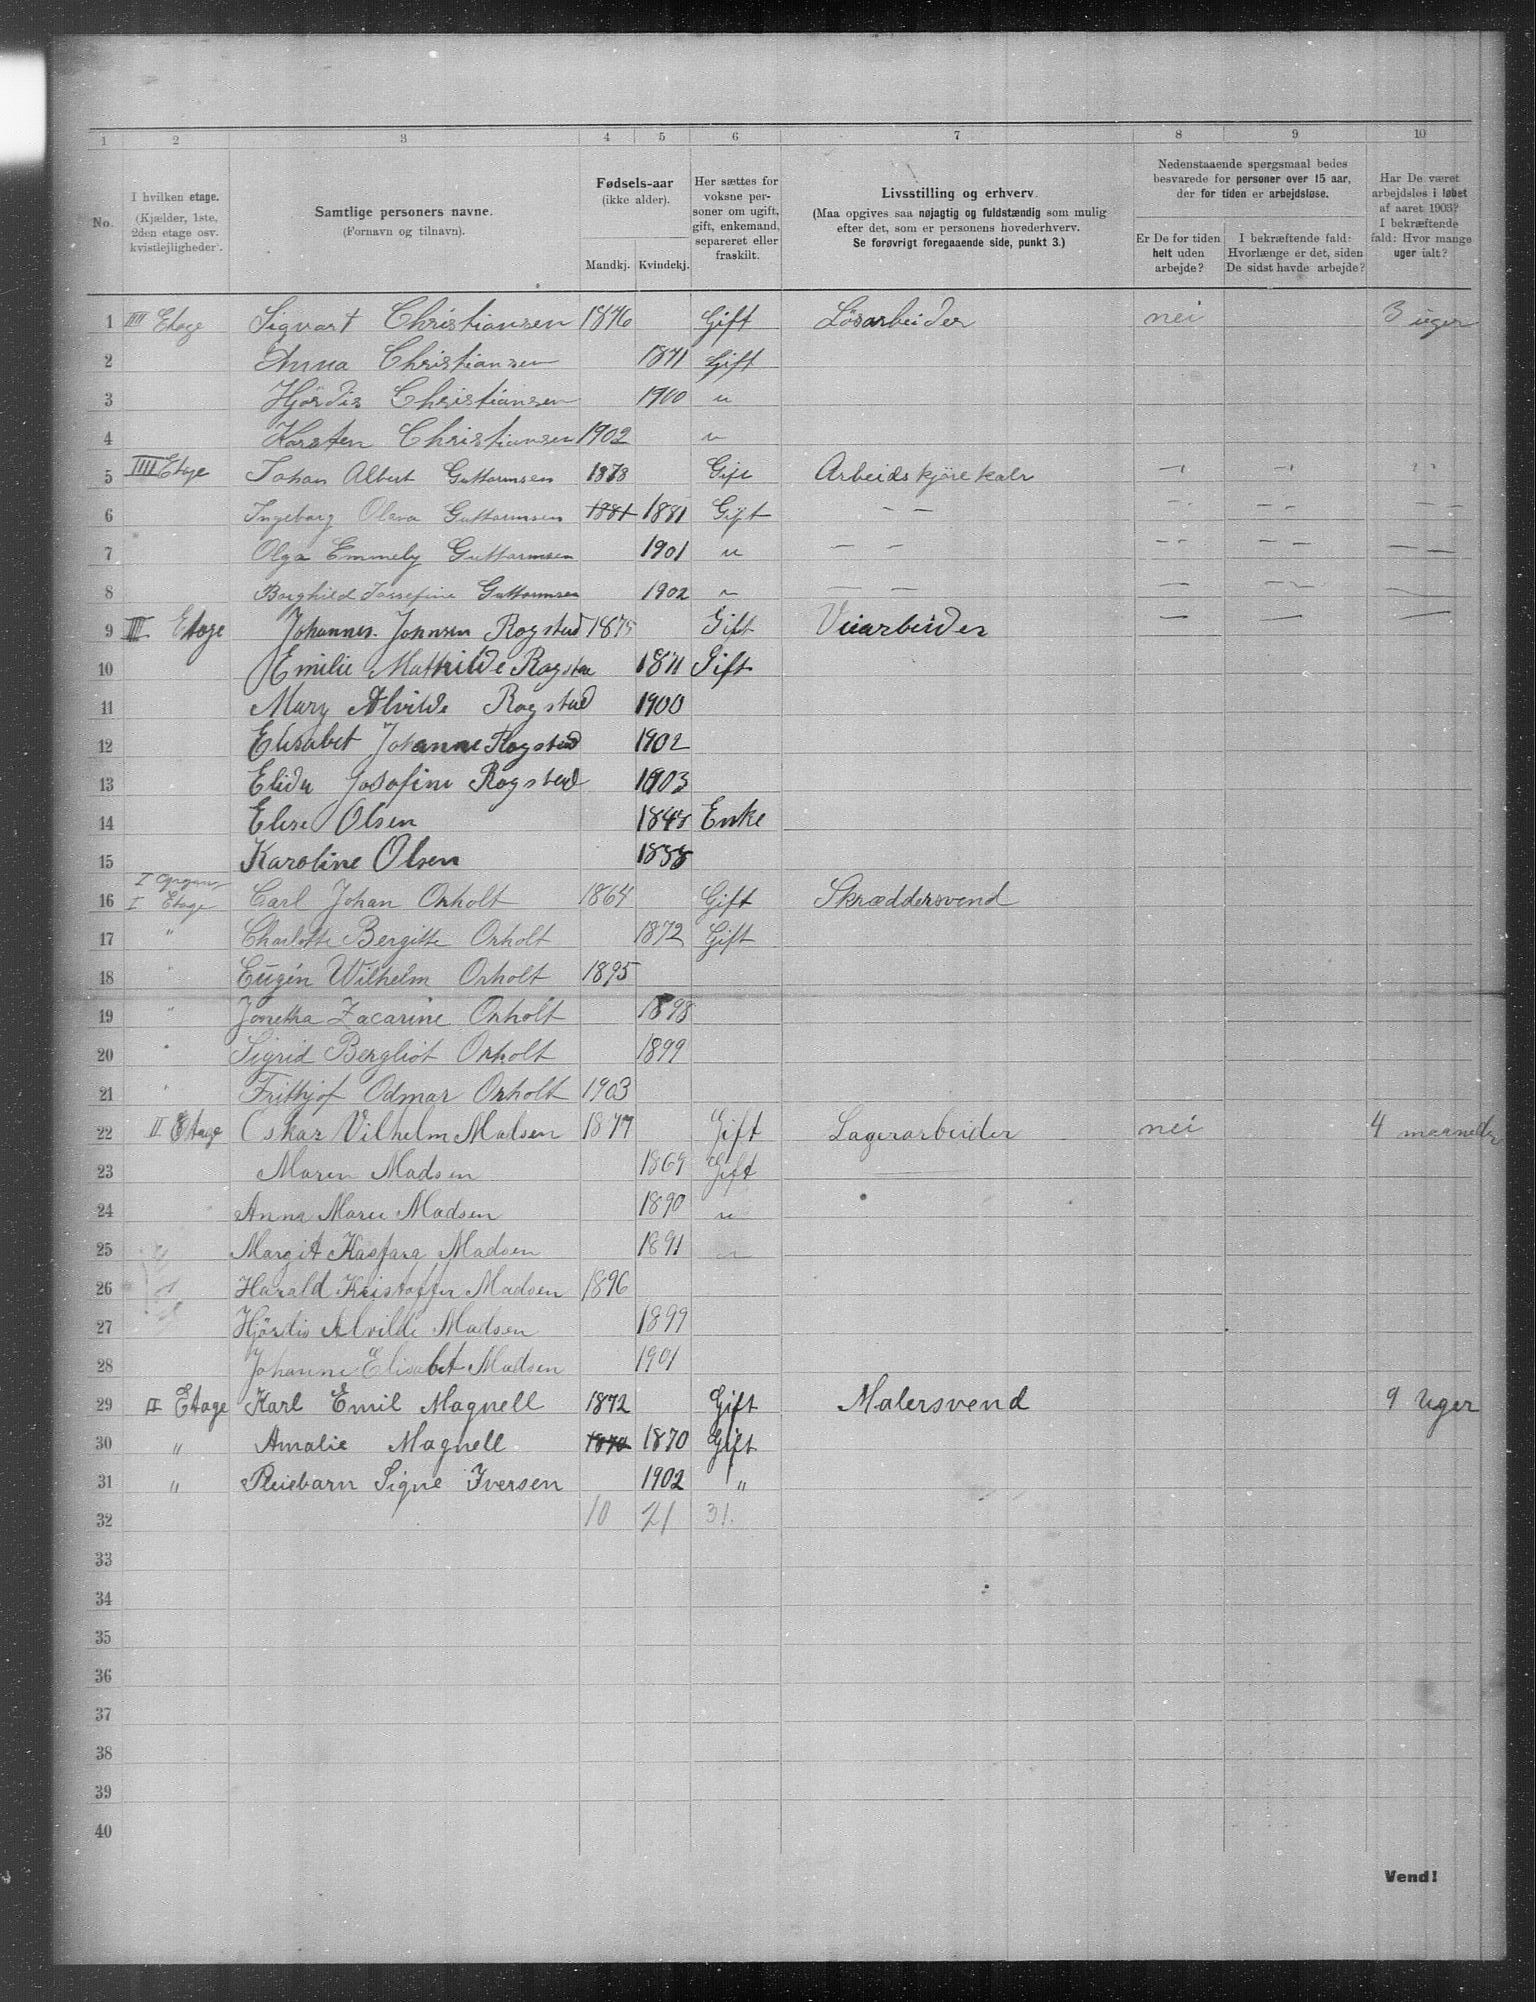 1 2 3 4 5 6 7 8 9 10
No.
I hvilken etage. (Kjælder, 1ste, 2den etage osv. kvistlejligheder).
Samtlige personers navne. (Fornavn og tilnavn).
Fødsels-aar (ikke alder).
Mandkj. Kvindekj.
Her sættes for voksne personer om ugift, gift, enkemand, separeret eller fraskilt.
Livsstilling og erhverv.
(Maa opgives saa nøjagtig og fuldstændig som mulig efter det, som er personens hovederhverv.
Se forøvrigt foregaaende side, punkt 3.)
Nedenstaaende spørgsmaal bedes besvarede for personer over 15 aar, der for tiden er arbejdsløse.
Er De for tiden helt uden arbejde?
I bekræftende fald: Hvorlænge er det, siden De sidst havde arbejde?
Har De været arbejdsløs i løbet af aaret 1903? I bekræftende fald: Hvor mange uger ialt?
1 IIII Etage Sigvart Christiansen 1876 Gift Løsarbeider nei 3 uger
2 Anna Christiansen 1871 Gift
3 Hjördis Christiansen 1900 u
4 Karsten Christiansen 1902 u
5 IIII Etage Johan Albert Guttormsen 1878 Gift Arbeidskjörekarl
6 Ingeborg Olava Guttormsen 1881 1881 Gift — —
7 Olga Emmely Guttormsen 1901 u — —
8 Borghild Jossefine Guttormsen 1902 u — —
9 III Etage Johannes Johnsen Rogstad 1875 Gift Veiarbeider — — —
10 Emilie Mathilde Rogstad 1871 Gift
11 Mary Alvilde Rogstad 1900
12 Elisabet Johanne Rogstad 1902
13 Elida Josefine Rogstad 1903
14 Elise Olsen Enke
15 Karoline Olsen
I Opgang
16 I Etage Carl Johan Orholt 1864 Gift Skræddersvend
17 " Charlotte Bergitte Orholt 1872 Gift
18 " Eugén Wilhelm Orholt 1895
19 " Jonetha Zacarine Orholt 1898
20 " Sigrid Bergliot Orholt 1899
21 " Frithjof Odmar Orholt 1903
22 II Etage Oskar Vilhelm Madsen 1877 Gift Lagerarbeider nei 4 maaneder
23 Maren Madsen 1869 Gift
24 Anna Marie Madsen 1890 u
25 Margit Kaspara Madsen 1891 u
26 Harald Kristoffer Madsen 1896
27 Hjørdis Alvilde Madsen 1899
28 Johanne Elisabet Madsen 1901
29 II Etage Karl Emil Magnell 1872 Gift Malersvend 9 Uger
30 " Amalie Magnell 1870 1870 Gift
31 " Pleiebarn Signe Iversen 1902 "
32 10 21 31.
33
34
35
36
37
38
39
40
Vend!